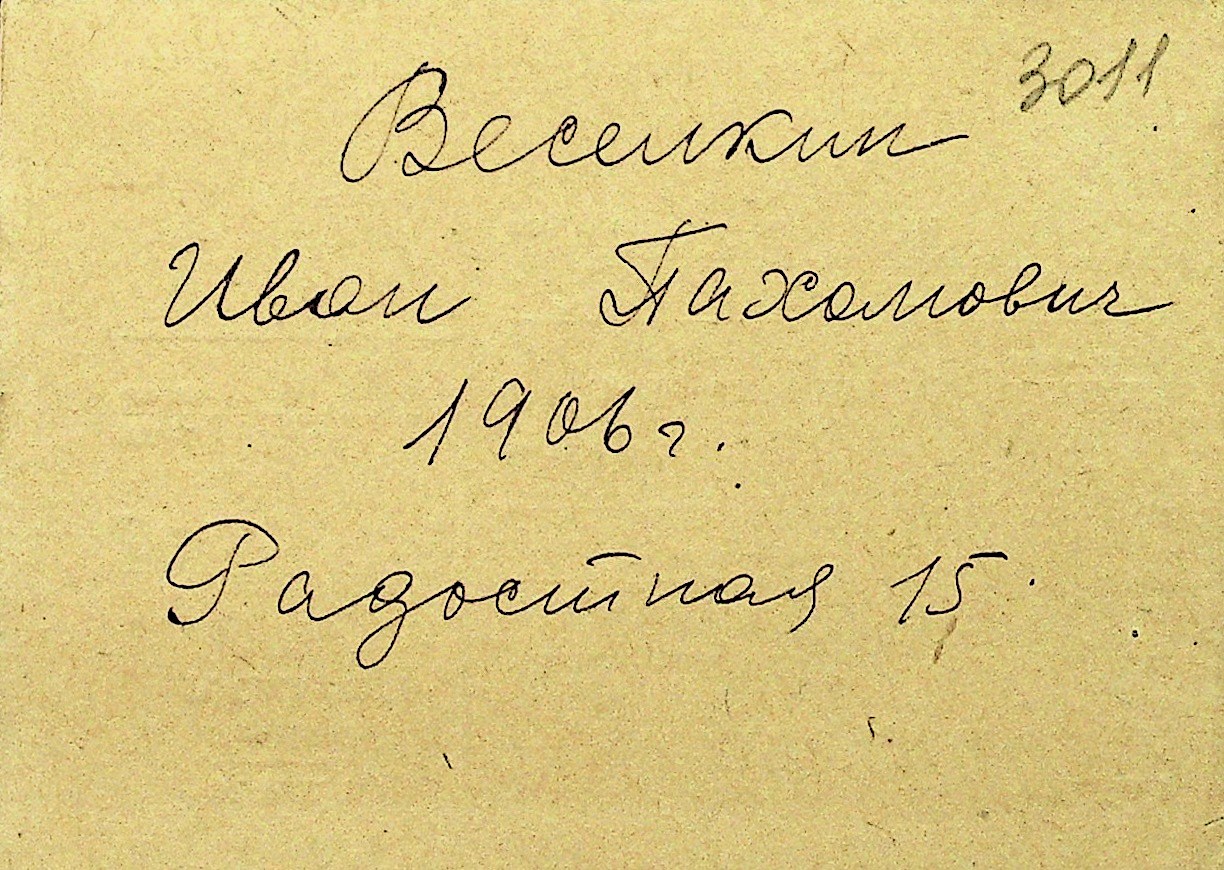 3011
Веселкин
Иван Пахомович
1906 г.
Радостная 15